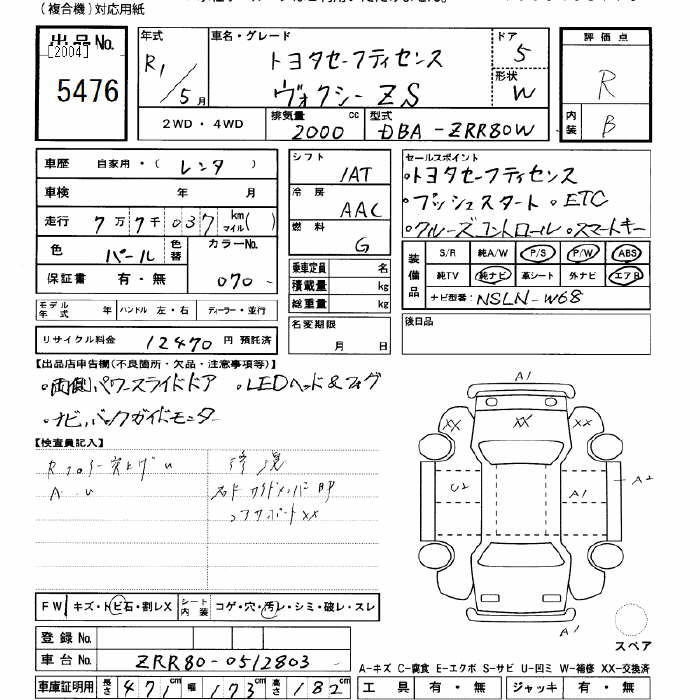 (複合機)対応用紙
出品No. [2004] 5476
年式 R1/5月
車名・グレード トヨタセーフティセンス
ヴォクシーZS
ドア 5
形状 W
2WD・4WD
排気量 2000 cc
型式 DBA-ZRR80W
評価点 R
内装 B
車歴 自家用・(レンタ)
車検 年 月
走行 7万7千037 km マイル( )
色 パール 色替 カラーNo. 070
保証書 有・無
シフト IAT
冷房 AAC
燃料 G
乗車定員 名
積載量 kg
総重量 kg
セールスポイント
・トヨタセーフティセンス
・プッシュスタート ・ETC
・クルーズコントロール ・スマートキー
装備品 S/R 純A/W P/S P/W ABS
純TV 純ナビ 革シート 外ナビ エアB
ナビ型番: NSLN-W68
モデル年式 年 ハンドル 左・右 ディーラー・並行
リサイクル料金 12470 円 預託済
名変期限 月 日
後日品
【出品店申告欄(不良箇所・欠品・注意事項等)】
・両側パワースライドドア ・LEDヘッド&フォグ
・ナビ,バックガイドモニター
【検査員記入】
Rフロアー突上げU
A U
修現
右ドサイドメンバー
コアサポートXX
A1
XX XX XX
U2 A1 A2
A1
スペア
FW キズ・トビ石・割レX シート内装 コゲ・穴・汚レ・シミ・破レ・スレ
登録No.
車台No. ZRR80-0512803
車庫証明用 長さ 471cm 幅 173cm 高さ 182cm
A-キズ C-腐食 E-エクボ S-サビ U-凹ミ W-補修 XX-交換済
工具 有・無 ジャッキ 有・無